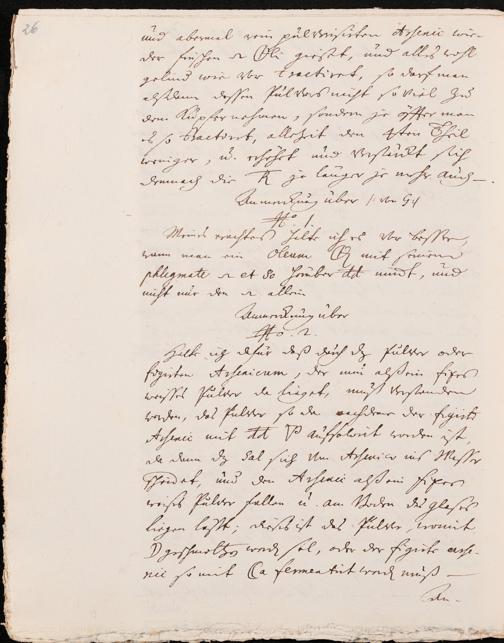 26
und abermal rein pulverisirten Arsenic wie-
der frischen Oli geüset, und alles wohl
gelind wie vor tractiret, so darf man
alsdann dessen Pulvers nicht so viel zu
dem Kupfer nehmen, sondern je öffter man
es so tractirt, allezeit den 4ten Theil
weniger, u. erhöhet und verstärckt sich
demnach die je länger je mehr auch —.
Anmerckung über
No. 1.
Meines erachtens hielte ich es vor besser,
wann man ein Oleum mit seinem
phlegmate et do hierüber nimt, und
nicht nur den allein
Anmerckung über
No. 2.
Halte ich dafür daß durch dz Pulver oder
figirten Arsenicum, der nun alß ein fixes
weisses Pulver da lieget, muß verstanden
werden, das Pulver so da nachdeme der figirte
Arsenic mit aufsolvirt worden ist,
da dann dz Sal sich vom Arsenico ins Wasser
scheidet, und den Arsenic alß ein fixes
weises Pulver fallen u. am Boden des glases
liegen läßt; dieses ist das Pulver womit
geschmoltzen werden sol, oder der figirte arse-
nic so mit fermentirt werden muß —
An-